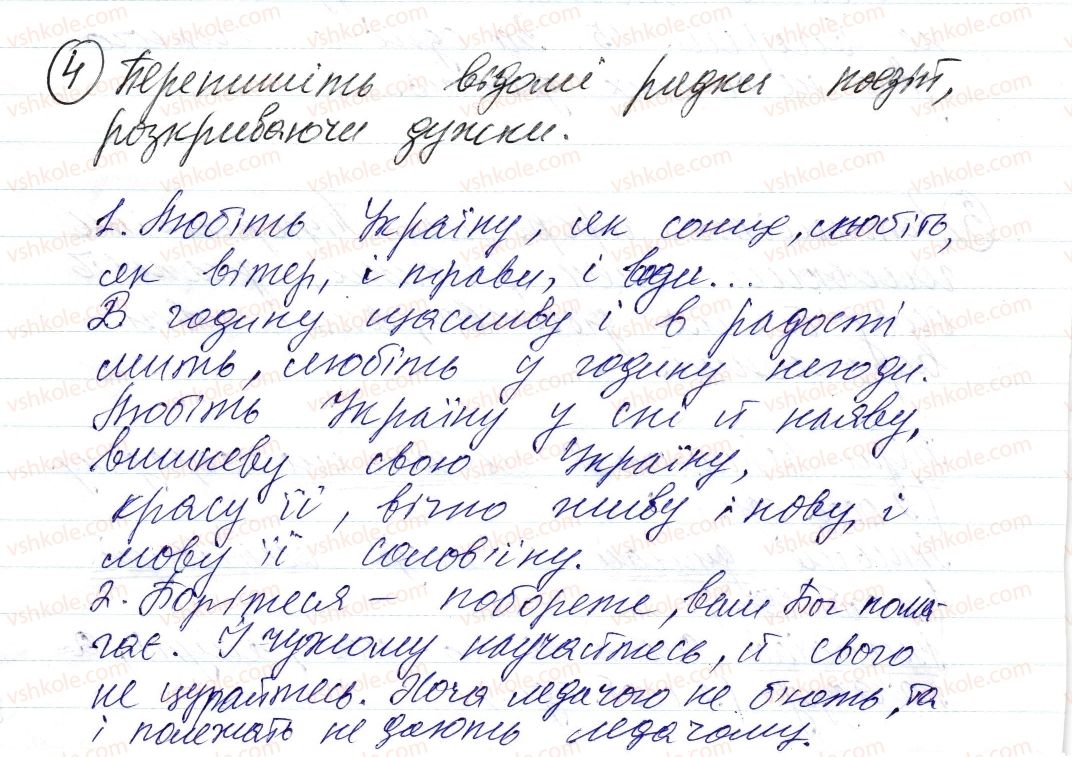 4 Перепишіть відомі рядки поезії,
розкриваючи дужки.
1. Любіть Україну, як сонце, любіть,
як вітер, і трави, і води...
В годину щасливу і в радості
мить, любіть у годину негоди.
Любіть Україну у сні й наяву,
вишневу свою Україну,
красу її, вічно живу і нову, і
мову її солов'їну.
2. Борітеся – поборете, вам Бог пома-
гає. І чужому научайтесь, й свого
не цурайтесь. Хоча ледачого не б'ють, та
і полежать не дають ледачому.